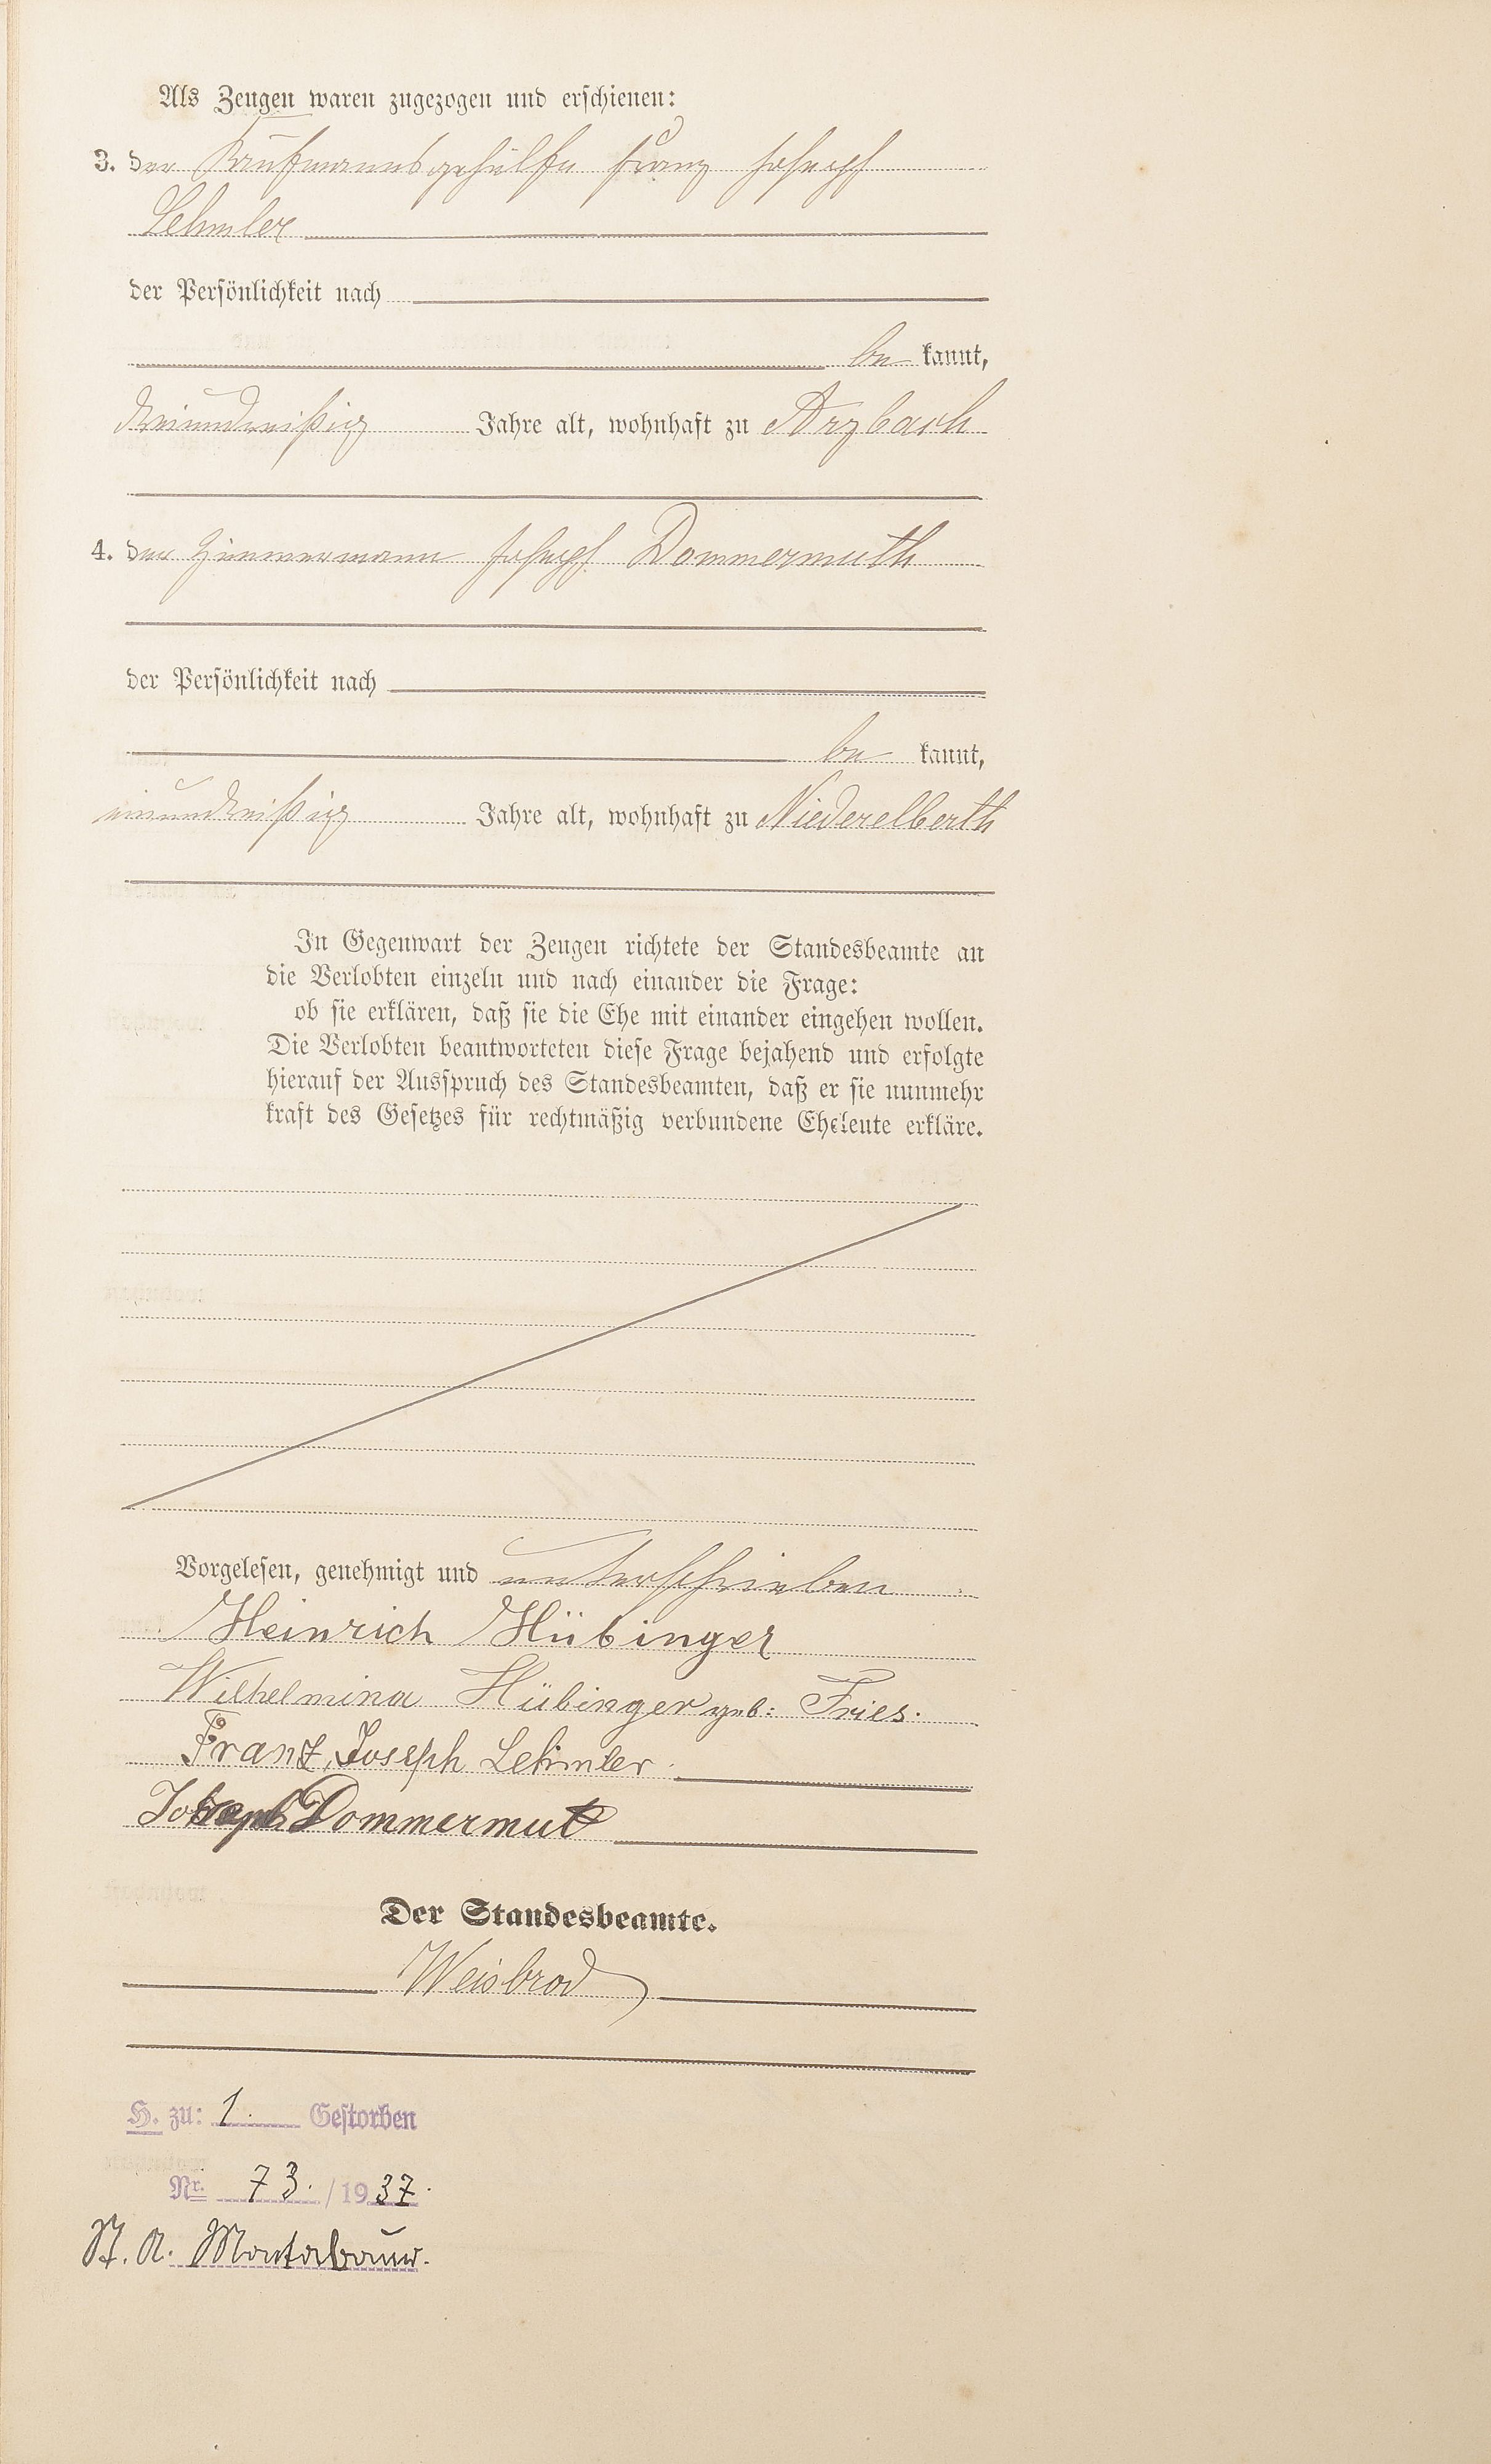 Als Zeugen waren zugezogen und erschienen:
3. der Kaufmannsgehülfe Franz Joseph
Lehmler
der Persönlichkeit nach
be kannt,
dreiunddreißig Jahre alt, wohnhaft zu Arzbach
4. der Zimmermann Joseph Dommermuth
der Persönlichkeit nach
be kannt,
einunddreißig Jahre alt, wohnhaft zu Niederelberth
In Gegenwart der Zeugen richtete der Standesbeamte an
die Verlobten einzeln und nach einander die Frage:
ob sie erklären, daß sie die Ehe mit einander eingehen wollen.
Die Verlobten beantworteten diese Frage bejahend und erfolgte
hierauf der Ausspruch des Standesbeamten, daß er sie nunmehr
kraft des Gesetzes für rechtmäßig verbundene Eheleute erkläre.
Vorgelesen, genehmigt und unterschrieben
Heinrich Hübinger
Wilhelmina Hübinger geb: Fries.
Franz Joseph Lehmler.
Joseph Dommermut
Der Standesbeamte.
Weisbrod
H. zu: 1. Gestorben
Nr. 73. / 1937.
St. A. Montabaur.